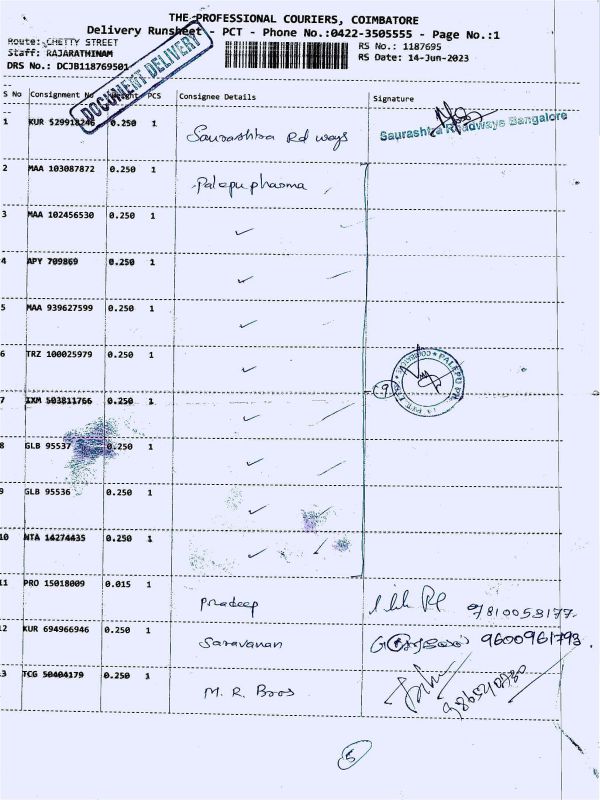 THE PROFESSIONAL COURIERS, COIMBATORE
Delivery Runsheet - PCT - Phone No.:0422-3505555 - Page No.:1
Route: CHETTY STREET
RS No.: 1187695
Staff: RAJARATHINAM
RS Date: 14-Jun-2023
DRS No.: DCJB118769501
DOCUMENT DELIVERY
S No Consignment No Weight PCS Consignee Details Signature
1 KUR 529918246 0.250 1 Saurashtra Rd ways Saurashtra Roadways Bangalore
2 MAA 103087872 0.250 1 Palepu pharma
3 MAA 102456530 0.250 1
4 APY 709869 0.250 1
5 MAA 939627599 0.250 1
6 TRZ 100025979 0.250 1
7 IXM 503811766 0.250 1
9
PALEPU
8 GLB 95537 0.250 1
9 GLB 95536 0.250 1
10 NTA 14274435 0.250 1
11 PRO 15018009 0.015 1 Pradeep 9810053177
12 KUR 694966946 0.250 1 Saravanan 9600961793
3 TCG 50404179 0.250 1 M. R. Bros
5